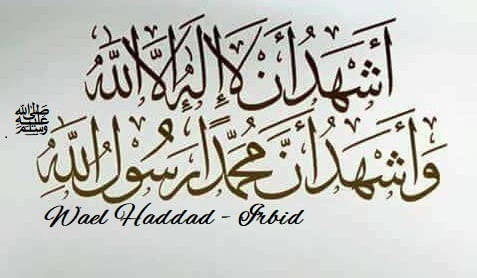 أَشْهَدُ أَنْ لَا إِلَٰهَ إِلَّا اللَّهُ
وَأَشْهَدُ أَنَّ مُحَمَّدًا رَسُولُ اللَّهِ
ﷺ
Wael Haddad - Irbid